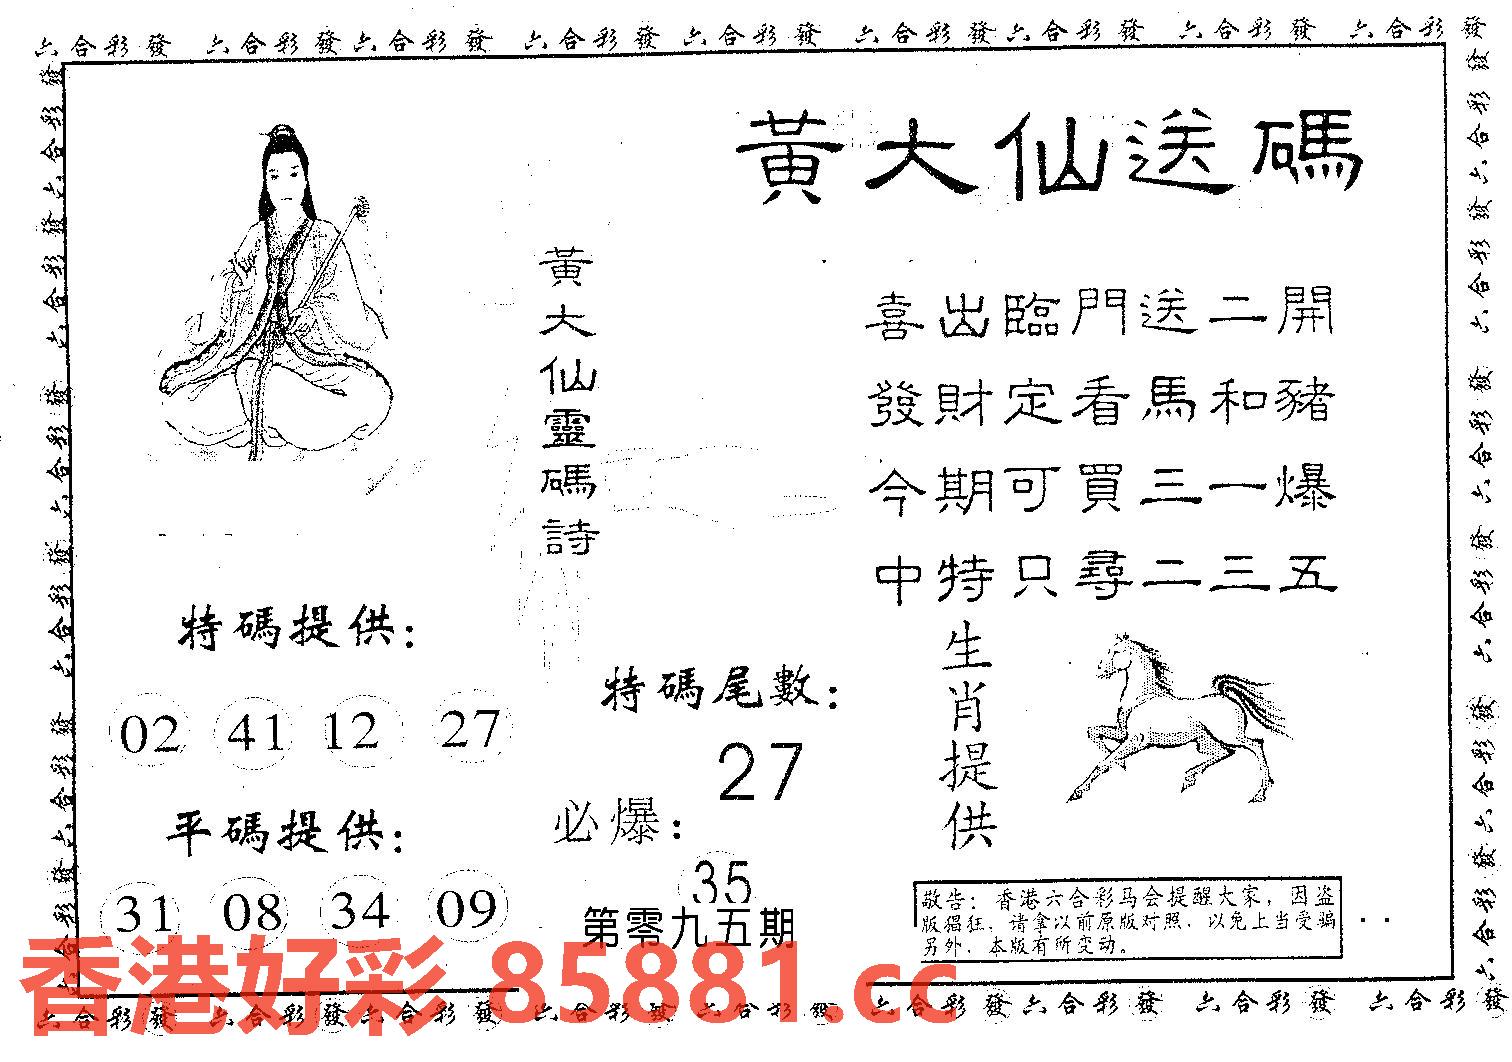 六合彩發 六合彩發 六合彩發 六合彩發 六合彩發 六合彩發 六合彩發 六合彩發 六合彩發
黃大仙送碼
黃大仙靈碼詩
喜出臨門送二開
發財定看馬和豬
今期可買三一爆
中特只尋二三五
特碼提供：
02 41 12 27
平碼提供：
31 08 34 09
特碼尾數：
27
必爆：
35
第零九五期
生肖提供
敬告：香港六合彩马会提醒大家，因盗
版猖狂，请拿以前原版对照，以免上当受骗
另外，本版有所变动。
香港好彩 85881.cc
六合彩發 六合彩發 六合彩發 六合彩發 六合彩發 六合彩發 六合彩發 六合彩發